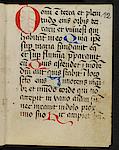 Dom̄i ē terra et pleni
tudo eius orbis ter
rarū et vniuersi qui
habitant in eo Quia ip̄e
sup maria fundauit eū
et sup flumina p̄parauit
eum Quis ascendet ī mōtē
dn̄i aut quis stabit ī lo
co sc̄o eius Innocens ma
nibus et mundo corde qui nō
accepit in vano animam
suam nec iurauit in dolo proxi
mo suo Hic accipiet